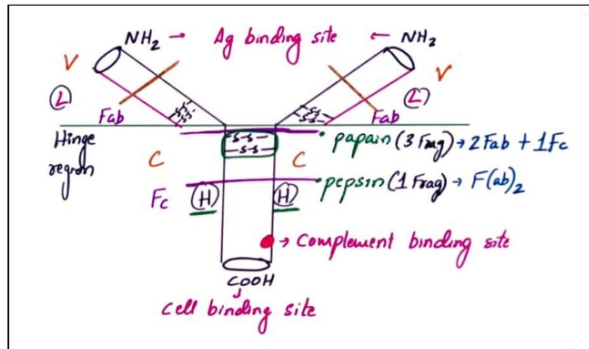 NH₂ → Ag binding site ← NH₂
V V
L L
Fab Fab
-S-S- -S-S-
Hinge region
-S-S-
-S-S-
papain (3 Frag) → 2 Fab + 1 Fc
C C
pepsin (1 Frag) → F(ab)₂
Fc H H
→ Complement binding site
COOH
Cell binding site